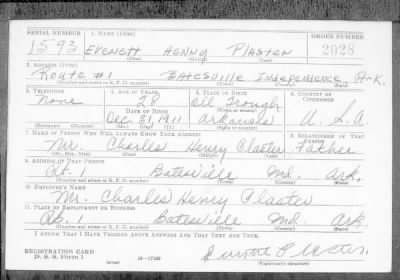 SERIAL NUMBER 1. NAME (Print) ORDER NUMBER
1593 EVERETT HENRY PLASTER 2028
(First) (Middle) (Last)
2. ADDRESS (Print)
ROUTE #1 BATESVILLE INDEPENDENCE ARK.
(Number and street or R. F. D. number) (Town) (County) (State)
3. TELEPHONE 4. AGE IN YEARS 5. PLACE OF BIRTH 6. COUNTRY OF CITIZENSHIP
None 28 Oil Trough
DATE OF BIRTH (Town or county)
Dec. 31, 1911 Arkansas U. S. A.
(Exchange) (Number) (Mo.) (Day) (Yr.) (State or country)
7. NAME OF PERSON WHO WILL ALWAYS KNOW YOUR ADDRESS 8. RELATIONSHIP OF THAT PERSON
Mr. Charles Henry Plaster Father
(Mr., Mrs., Miss) (First) (Middle) (Last)
9. ADDRESS OF THAT PERSON
Rt. 1 Batesville Ind. Ark.
(Number and street or R. F. D. number) (Town) (County) (State)
10. EMPLOYER'S NAME
Mr. Charles Henry Plaster
11. PLACE OF EMPLOYMENT OR BUSINESS
Rt. 1 Batesville Ind. Ark.
(Number and street or R. F. D. number) (Town) (County) (State)
I AFFIRM THAT I HAVE VERIFIED ABOVE ANSWERS AND THAT THEY ARE TRUE.
REGISTRATION CARD
D. S. S. FORM 1 (over) 16—17105 (Registrant's signature)